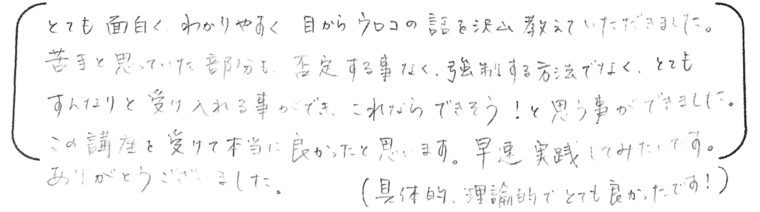 とても面白く、わかりやすく 目からウロコの話を沢山教えていただきました。
苦手と思っていた部分も、否定する事なく、強制する方法でなく、とても
すんなりと受け入れる事ができ、これならできそう！と思う事ができました。
この講座を受けて本当に良かったと思います。早速実践してみたいです。
ありがとうございました。　（具体的、理論的でとても良かったです！）